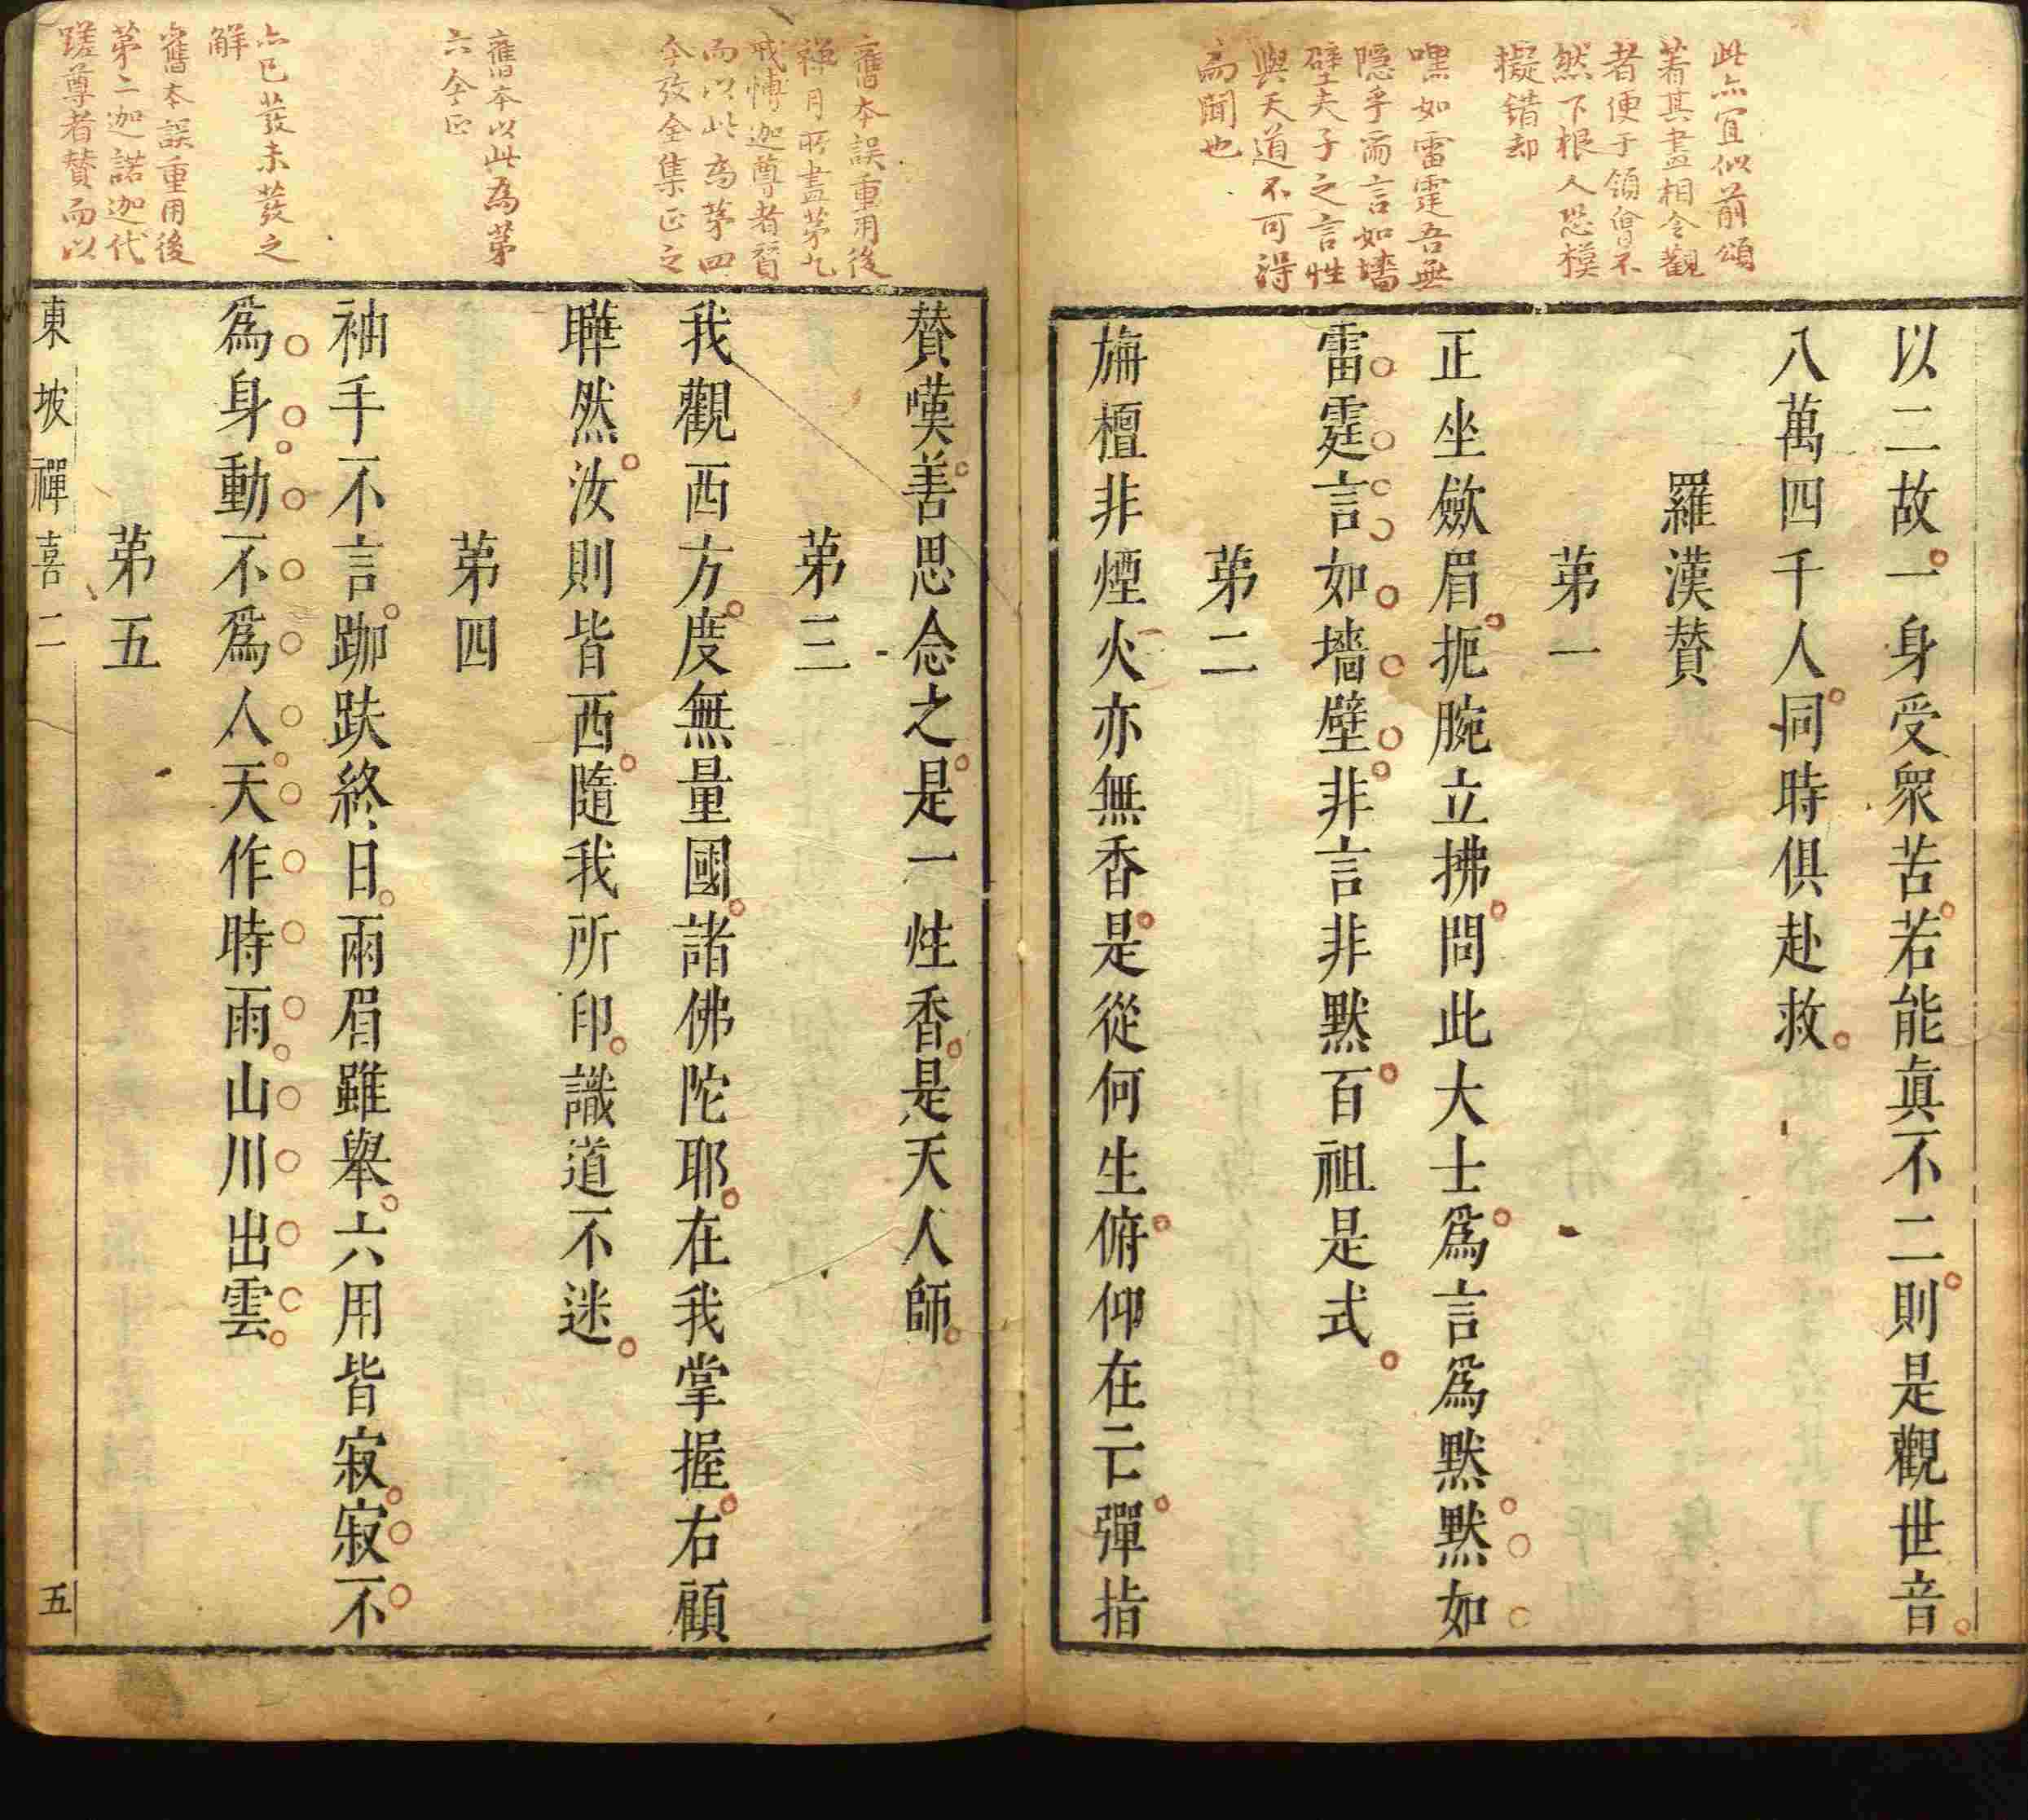 此亦宜似前頌
著其畫相令觀
者便于領會不
然下根人恐模
擬錯却
嘿如雷霆吾無
隱乎爾言如墻
壁夫子之言性
與天道不可得
而聞也
以二故一身受衆苦若能眞不二則是觀世音
八萬四千人同時俱赴救
羅漢贊
第一
正坐斂眉扼腕立拂問此大士爲言爲默默如
雷霆言如墻壁非言非默百祖是式
第二
旃檀非煙火亦無香是從何生俯仰在亡彈指
舊本誤重用後
禪月所畫第九
戒博迦尊者贊
而以此為第四
今攷全集正之
舊本以此為第
六今正
亦已發未發之
解
舊本誤重用後
第二迦諾迦代
蹉尊者贊而以
贊嘆善思念之是一性香是天人師
第三
我觀西方度無量國諸佛陀耶在我掌握右顧
瞱然汝則皆西隨我所印識道不迷
第四
袖手不言跏趺終日兩眉雖舉六用皆寂寂不
爲身動不爲人天作時雨山川出雲
第五
東坡禪喜二
五